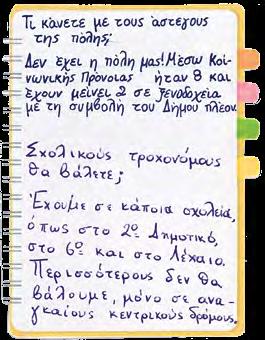 Τι κάνετε με τους άστεγους
της πόλης;
Δεν έχει η πόλη μας! Μέσω Κοι-
νωνικής Πρόνοιας ήταν 8 και
έχουν μείνει 2 σε ξενοδοχεία
με τη συμβολή του Δήμου πλέον.
Σχολικούς τροχονόμους
θα βάλετε;
Έχουμε σε κάποια σχολεία,
όπως στο 2ο Δημοτικό,
στο 6ο και στο Λέχαιο.
Περισσότερους δεν θα
βάλουμε, μόνο σε ανα-
γκαίους κεντρικούς δρόμους.